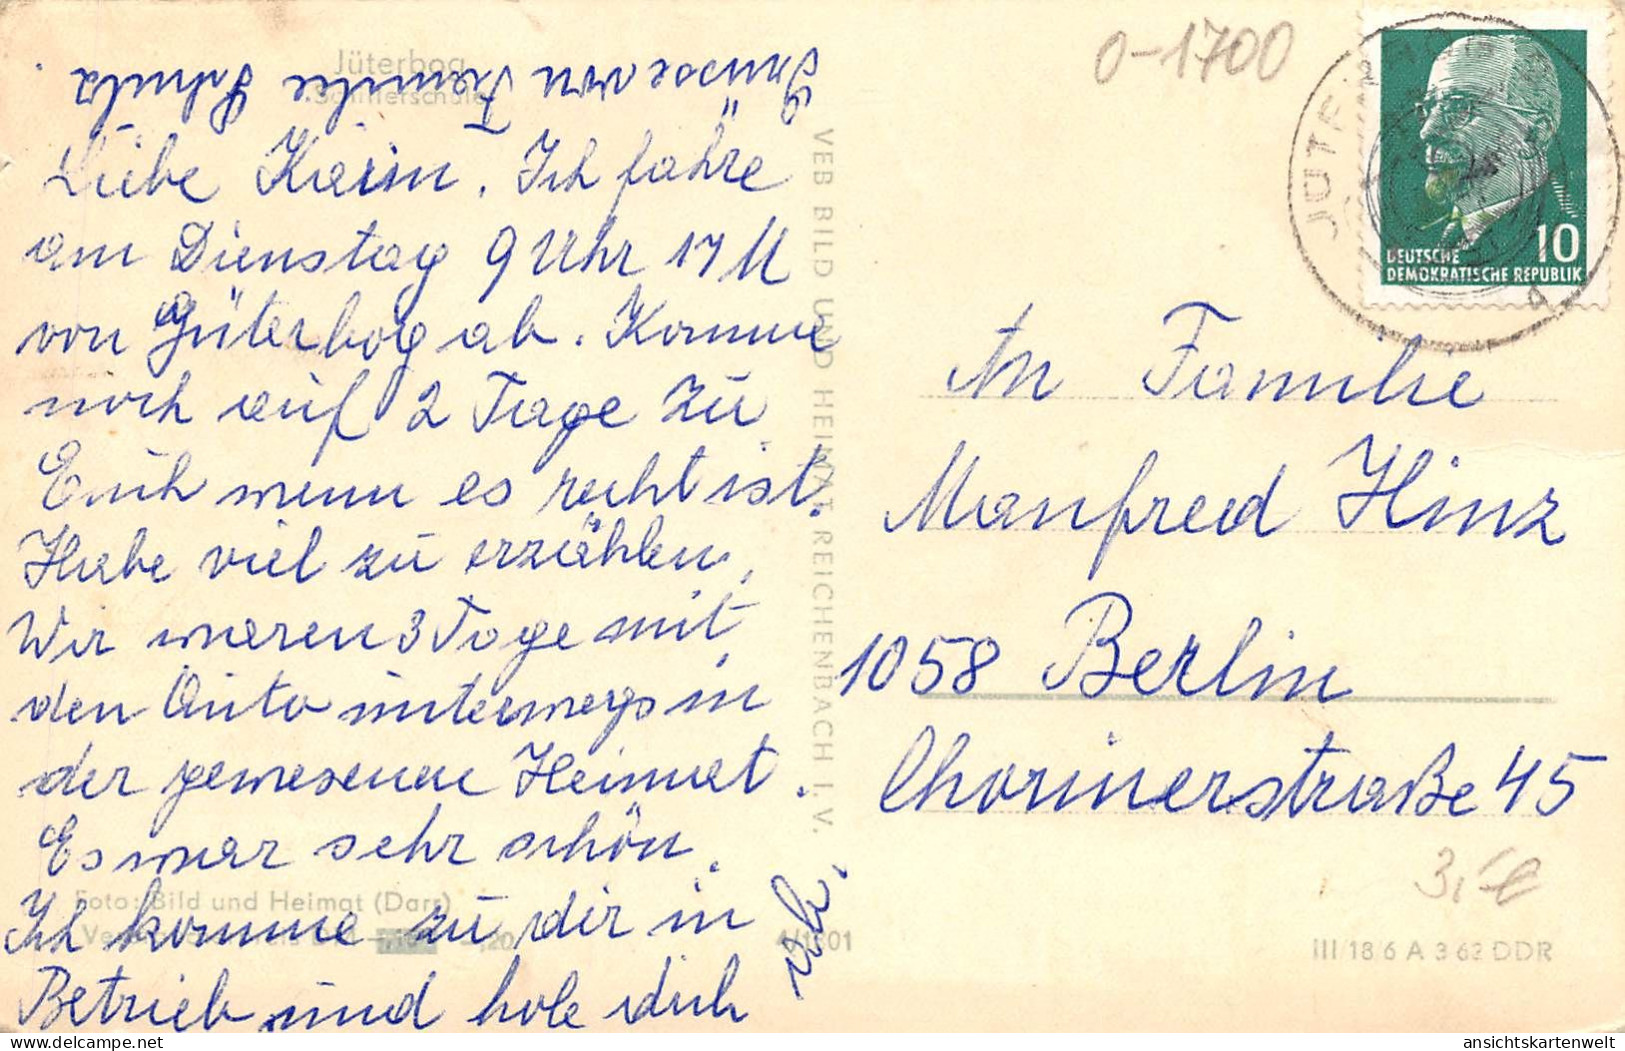 Jüterbog
Schillerschule
Grüsse von Familie Schulz
Liebe Karin. Ich fahre
am Dienstag 9 Uhr 17 M
von Güterbog ab. Komme
noch auf 2 Tage zu
Euch wenn es recht ist.
Habe viel zu erzählen,
Wir waren 3 Tage mit
den Auto unterwegs in
der gewesenen Heimat.
Es war sehr schön.
Ich komme zu dir in
Betrieb und hole dich
ab.
Foto: Bild und Heimat (Darr)
VEB BILD UND HEIMAT REICHENBACH I. V.
0-1700
DEUTSCHE 10
DEMOKRATISCHE REPUBLIK
An Familie
Manfred Hinz
1058 Berlin
Chorinerstraße 45
III/18/6 A 3/62 DDR
ansichtskartenwelt